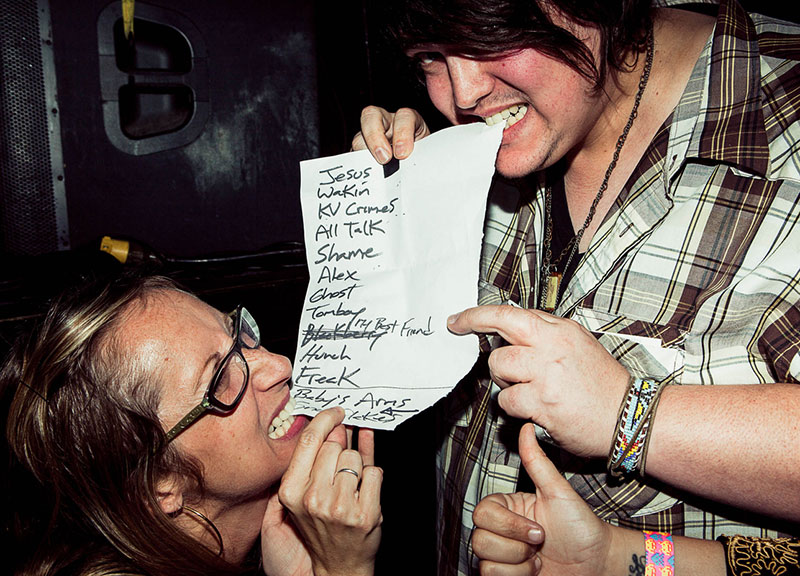 Jesus
Wakin
KV Crimes
All Talk
Shame
Alex
Ghost
Tomboy
Blackberry My Best Friend
Hunch
Freak
Baby's Arms